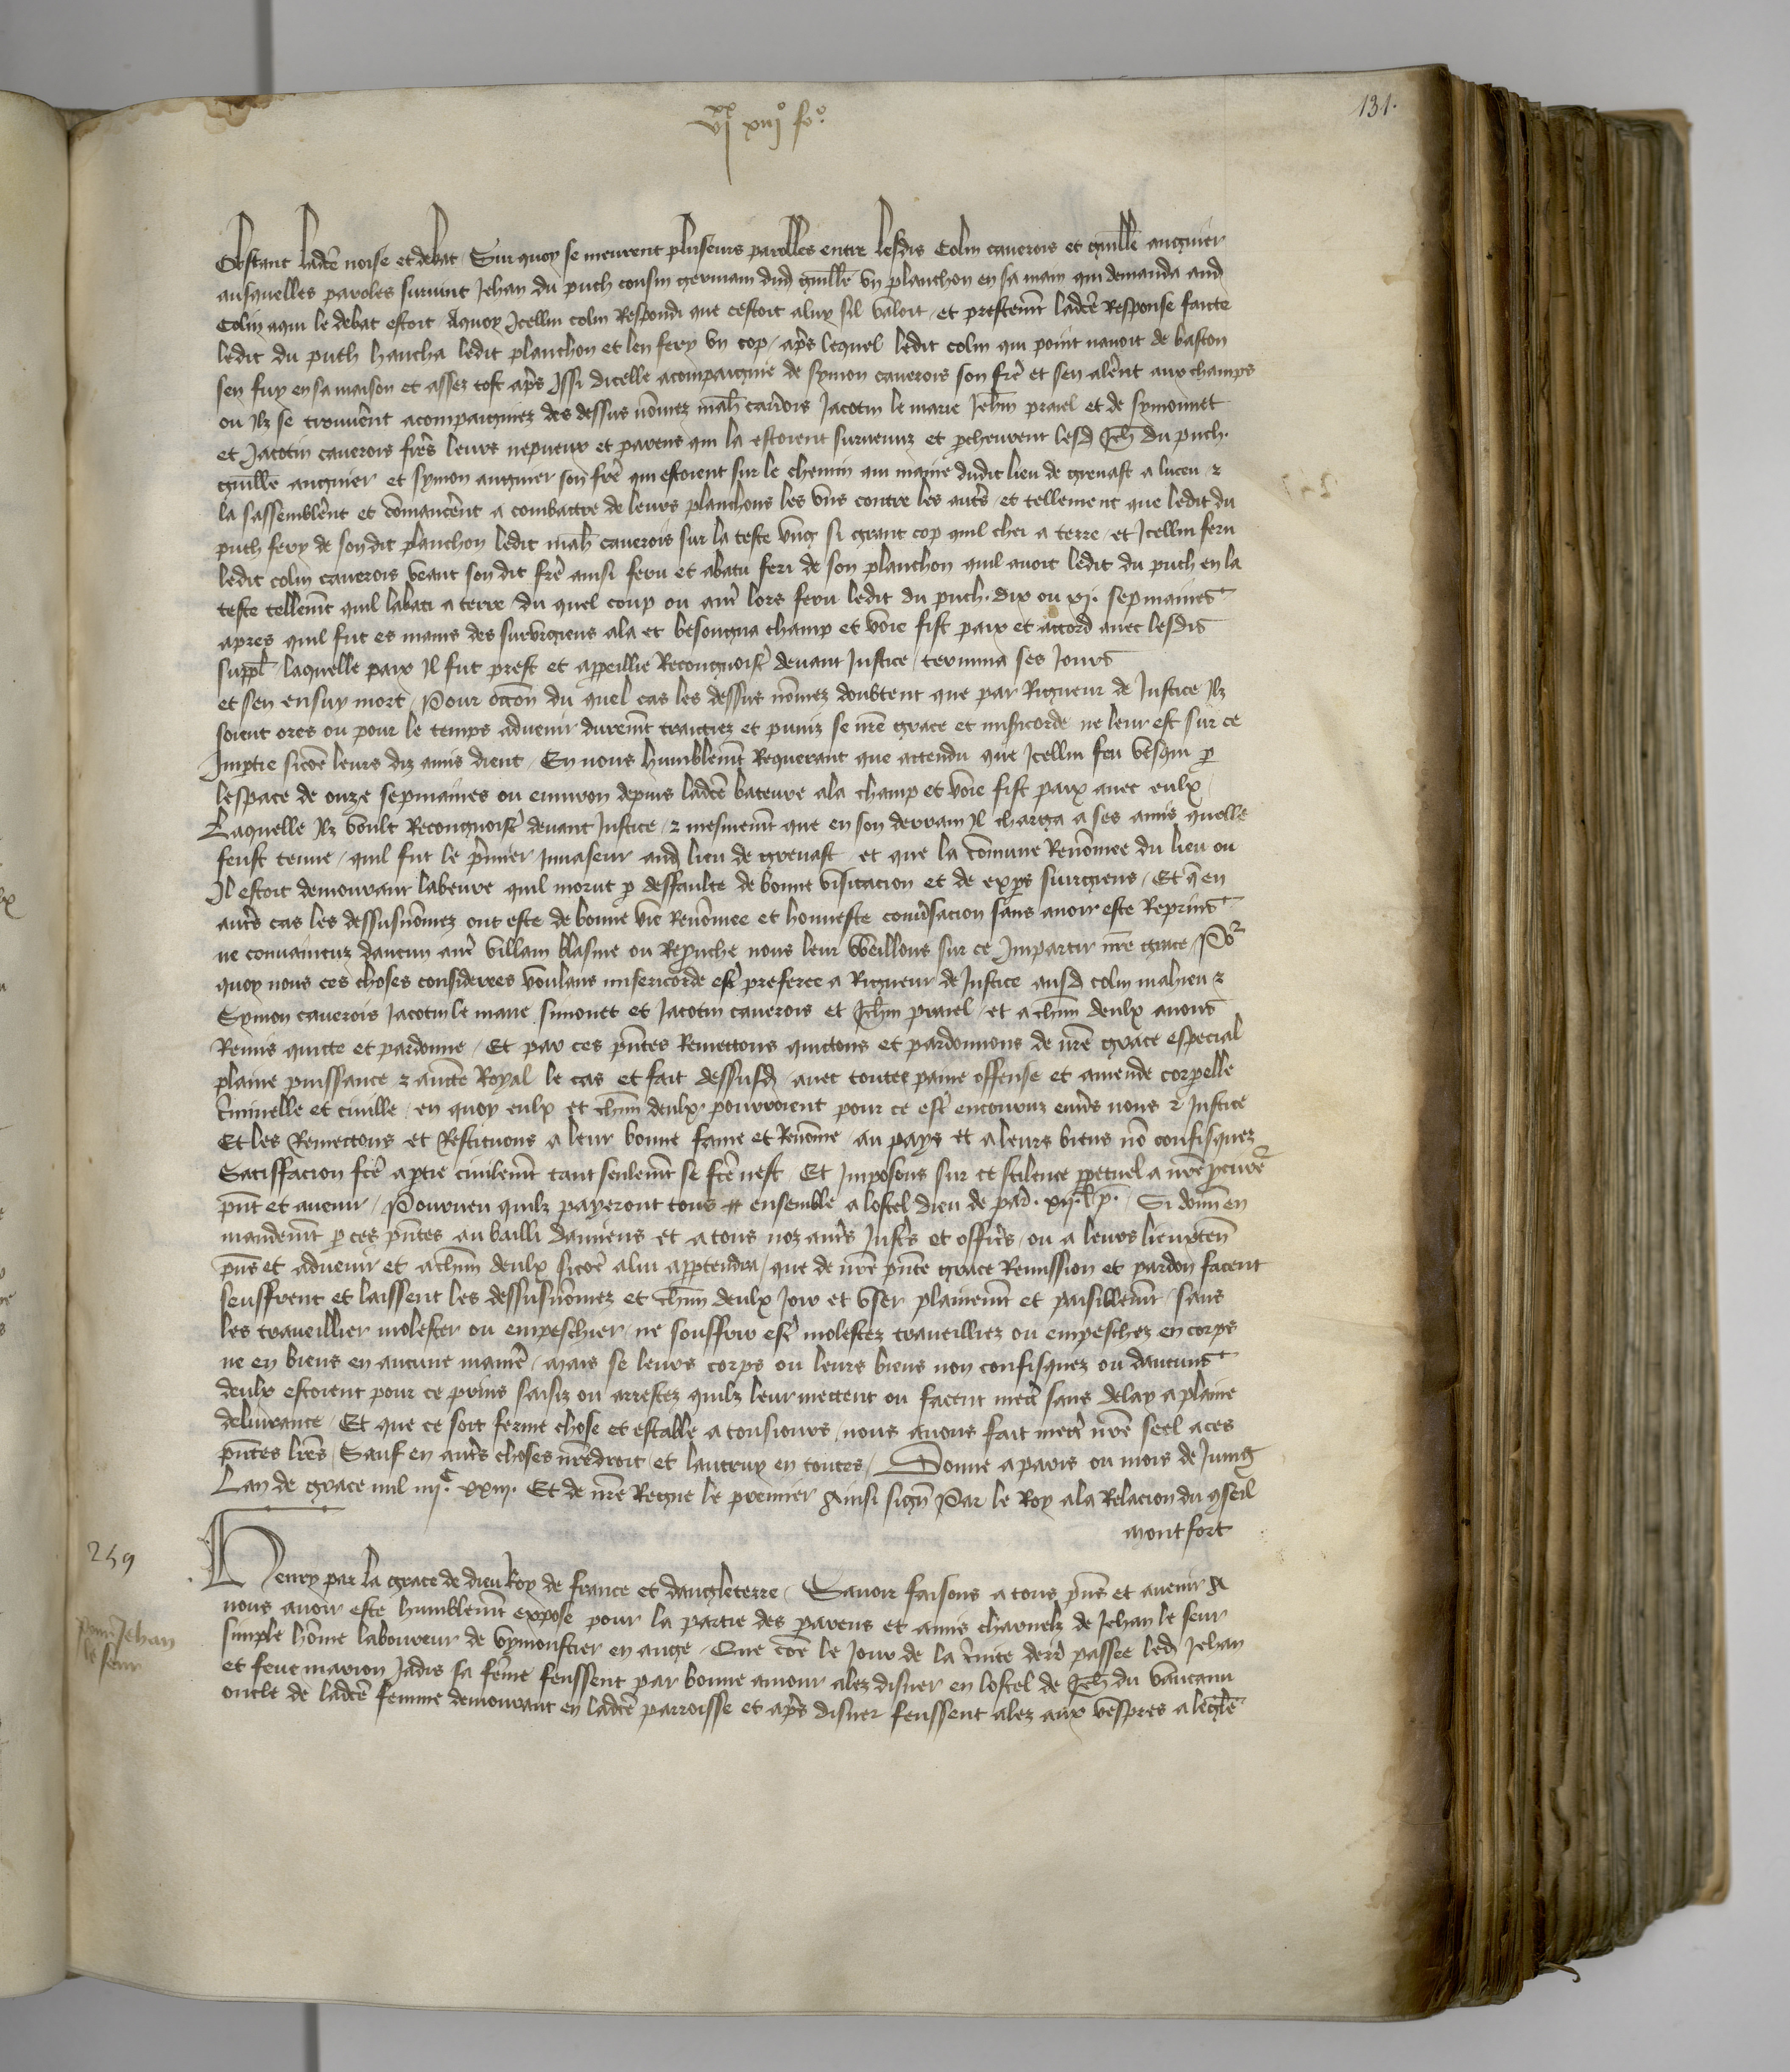 131.
vi xx xiij o fo o
Obstant ladce noise et debat Sur quoy se meurent pluseurs parolles entre lesdis Colin cauerois et guille auguier
ausquelles paroles suruint Jehan du puch cousin germain dud guille vn planchon en sa main qui demanda aud
Colin aqui le debat estoit Aquoy Icellui colin Respondi que cestoit aluy sil vouloit et prestemt ladce Response faicte
ledit du puch haucha ledit planchon et len fery vn cop apres lequel ledit colin qui point nauoit de baston
sen fuy en sa maison et assez tost apres Issi dicelle acompaignie de symon cauerois son fre et sen alerent aux champs
ou Ilz se trouuerent acompaignez des dessus nomez mah cauerois Jacotin le marie Jehin praiel et de symonnet
et Jacotin cauerois freres leurs nepueux et parens qui la estoient suruenuz et percheurent lesd Jeh du puch
guille auguier et symon auguier son fre qui estoient sur le chemin qui maine dudit lieu de greuast a luceu et
la sassemblerent et comancerent a combattre de leurs planchons les vns contre les autres et tellement que ledit du
puch fery de son dit planchon ledit mah cauerois sur la teste vng si grant cop quil chei a terre et Icellui feru
ledit colin cauerois veant son dit fre ainsi feru et abatu feri de son planchon quil auoit ledit du puch en la
teste tellemt quil labati a terre du quel coup ou autre lors feru ledit du puch dix ou xj sepmaines
apres quil fut es mains des surorgiens ala et besongna champ et voie fist paix et accord auec lesdis
suppl laquelle paix Il fut prest et appeillie Recongnoistre deuant Justice termina ses Jours
et sen ensuy mort Pour occon du quel cas les dessus nomez doubtent que par Rigueur de Justice Ilz
soient ores ou pour le temps aduenir duremt traictiez et puniz se nre grace et misicorde ne leur est sur ce
Imptie sicoe leurs diz amis dient En nous humblemt Requerant que attendu que Icellui feu vesqui p
lespace de onze sepmaines ou enuiron depuis ladce bateure ala champ et voie fist paix auec eulx
Laquelle Ilz voult Recongnoistre deuant Justice et mesmemt que en son derrain Il charga a ses amis quelle
feust tenue quil fut le premier Inuaseur aud lieu de greuast et que la comune Renomee du lieu ou
Il estoit demourant labeure quil morut p deffaulte de bonne visitacion et de expers surgiens Et q en
autres cas les dessusnomez ont este de bonne vie Renomee et honneste conuersacion sans auoir este Reprins
ne conuaincuz daucun autre villain blasme ou Reprouche nous leur vueillons sur ce Impartir nre grace Po
quoy nous ces choses considerees voulans misericorde estre preferee a Rigueur de Justice ausd colin mahieu et
Symon cauerois Jacotin le marie simonet et Jacotin cauerois et Jehin praiel et a chun deulx auons
Remis quicte et pardonne Et par ces pntes Remettons quictons et pardonnons de nre grace especial
plaine puissance et aucte Royal le cas et fait dessusd auec toute paine offense et amende corporelle
criminelle et ciuille en quoy eulx et chun deulx pourroient pour ce estre encouruz enuers nous et Justice
Et les Remettons et Restituons a leur bonne fame et Renomee au pays et a leurs biens no confisquez
Satisfacion fce aptie ciuilemt tant seulemt se fce nest Et Imposons sur ce scilence ppetuel a nre pcureur
pnt et auenir Pourueu quilz payeront tous ensemble a lostel dieu de par xij l p Si donn en
mandemt p ces pntes au bailli damiens et a tous noz autres Justics et officrs ou a leurs lieuxten
pns et aduenir et achun deulx sicoe alui apptendra que de nre pnte grace Remission et pardon facent
seuffrent et laissent les dessusnomez et chun deulx Joir et vser plainemt et paisiblemt sans
les trauueillier molester ou empeschier ne souffrir estre molestez trauueilliez ou empeschez en corps
ne en biens en aucune maniere mais se leurs corps ou leurs biens non confisquez ou daucuns
deulx estoient pour ce prins saisiz ou arrestez quilz leur mettent ou facent mettre sans delay a plaine
deliurance Et que ce soit ferme chose et estable a tousiours nous auons fait mettre nre seel a ces
pntes lres Sauf en autres choses nre droit et lautruy en toutes Donne a paris ou mois de Juing
Lan de grace mil iiij c xxiij Et de nre Regne le premier Ainsi signe Par le Roy ala Relacion du conseil
montfort
259
Henry par la grace de dieu Roy de france et dangleterre Sauoir faisons a tous pns et auenir A
pour Jehan
le seur
nous auoir este humblemt expose pour la partie des parens et amis charnelz de Jehan le seur
simple home laboureur de vymoustier en auge Que coe le Jour de la trinite dere passee led Jehan
et feue marion Jadis sa feme feussent par bonne amour alez disner en lostel de Jeh du vaucanu
oncle de ladce femme demourant en ladce parroisse et apres disner feussent alez aux vespres a legle